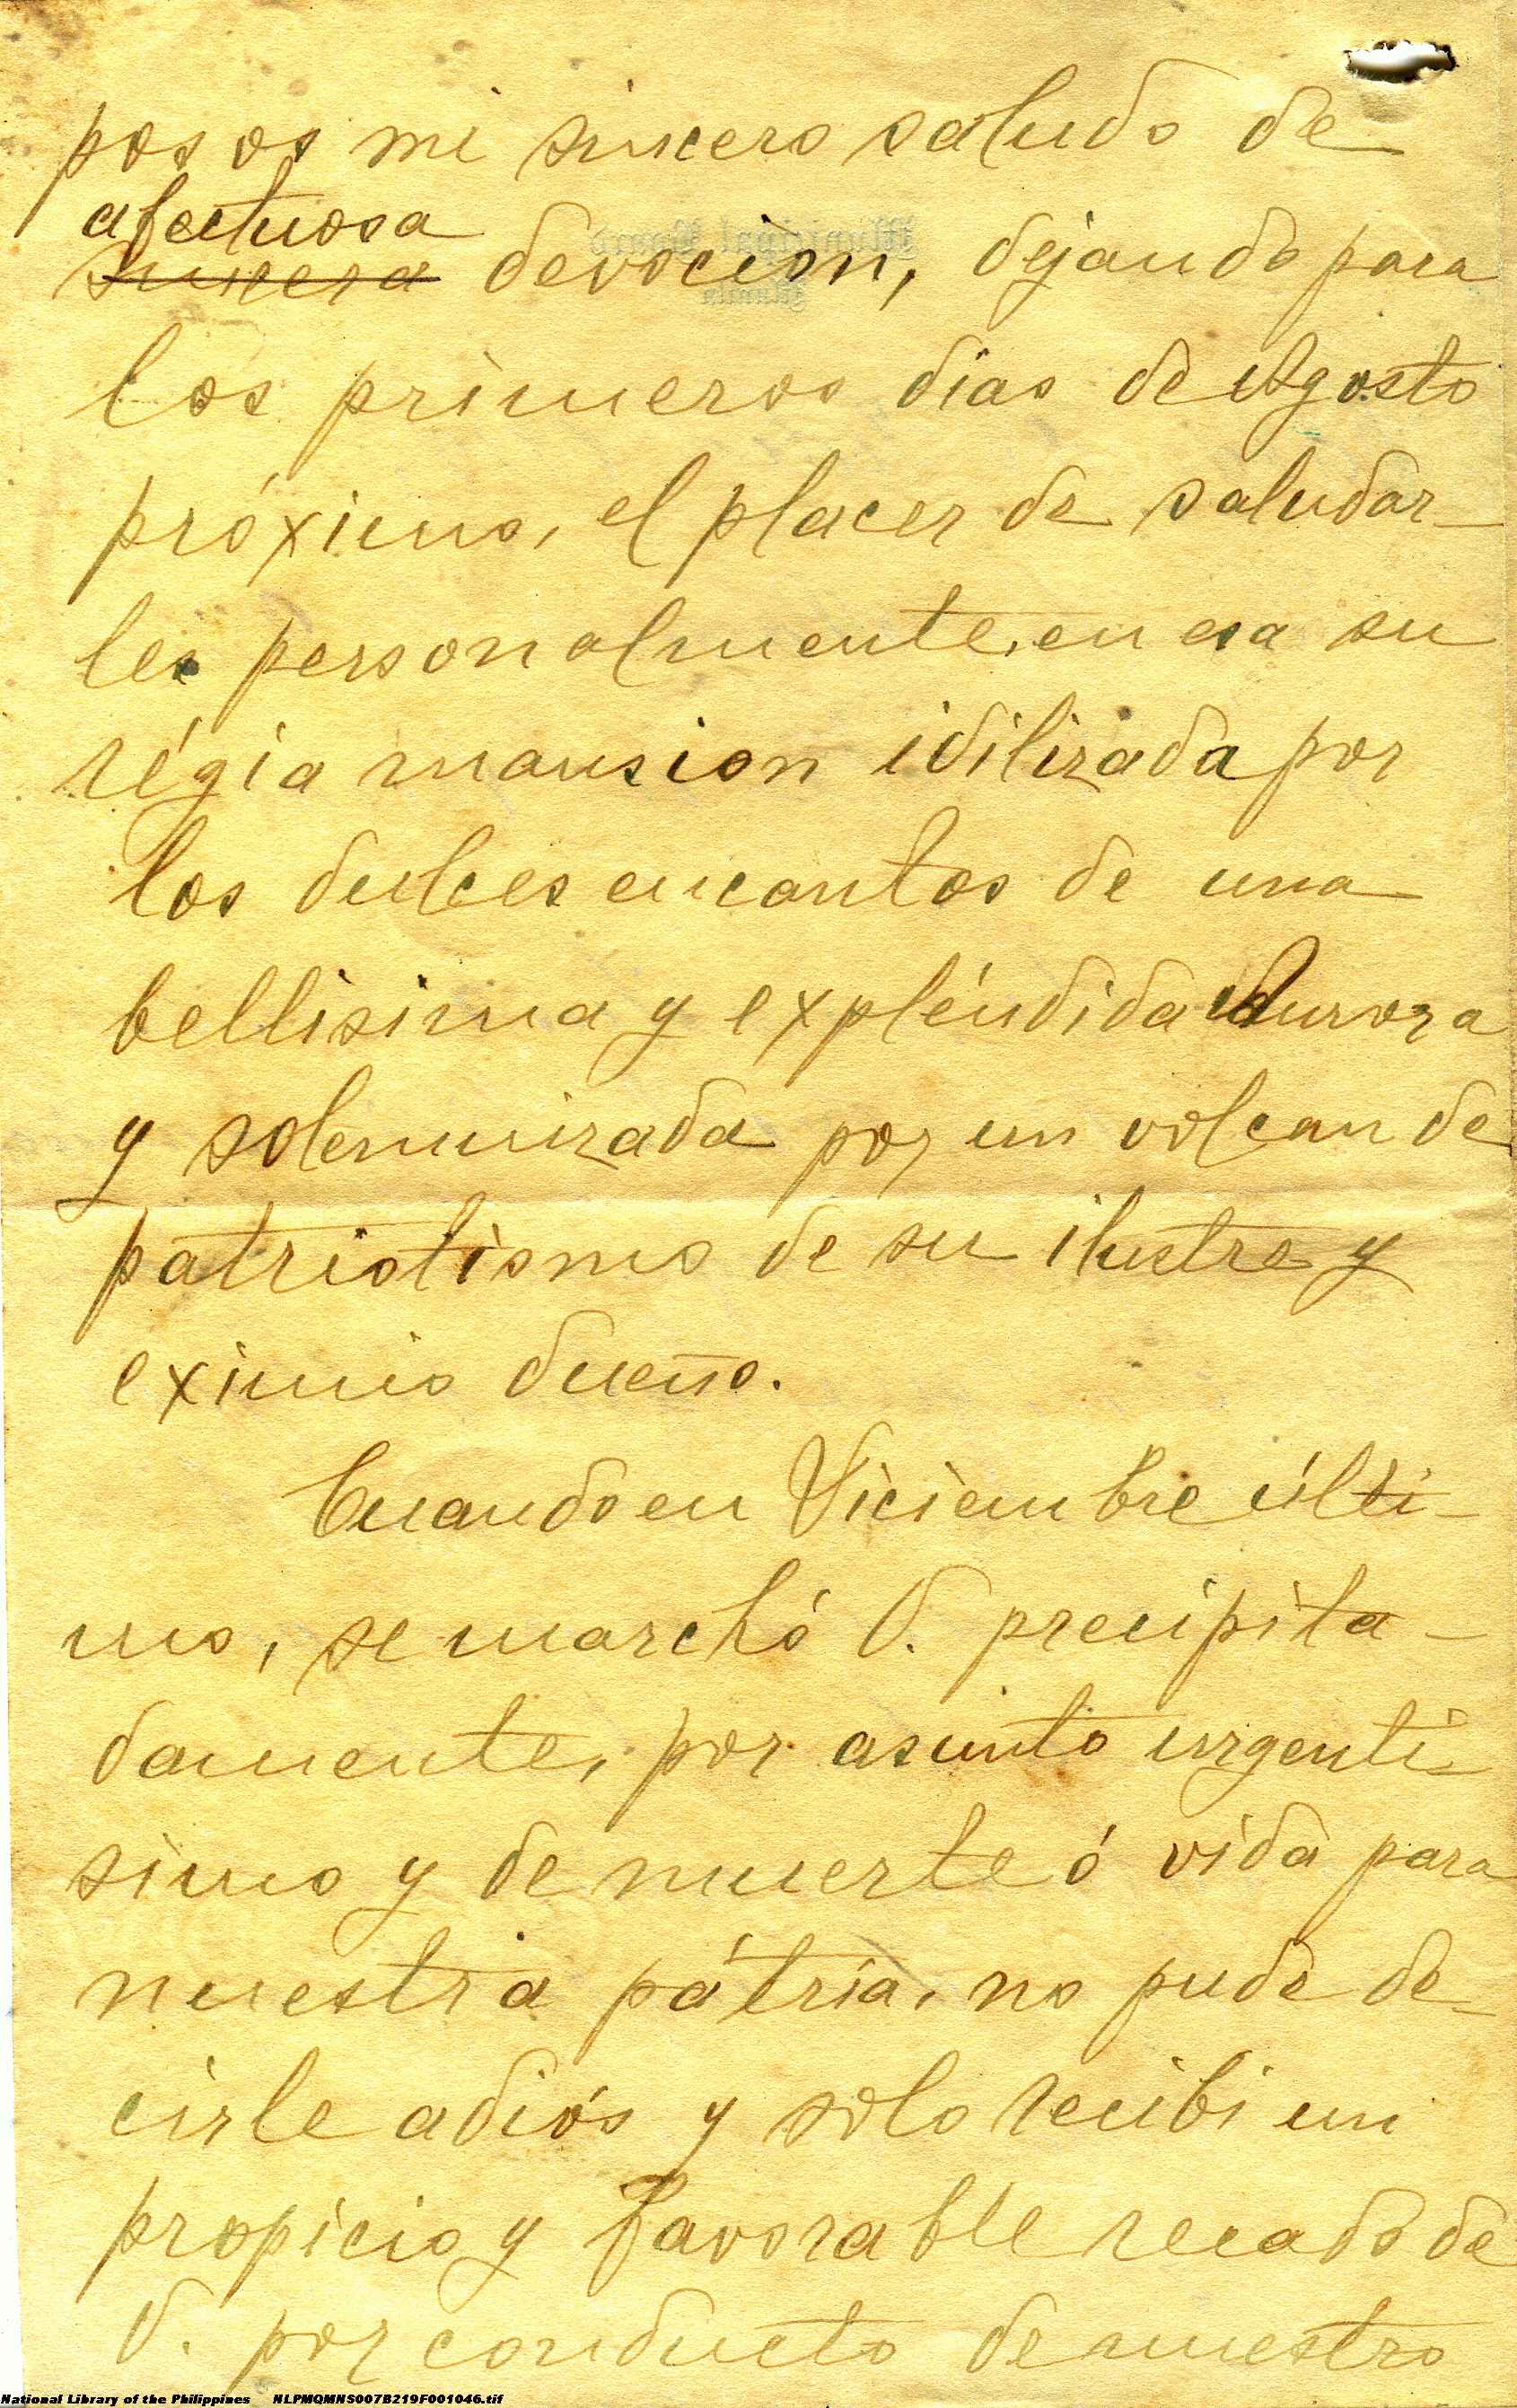 posos mi sincero saludo de
afectuosa
sincera devocion, dejando para
los primeros dias de Agosto
próximo, el placer de saludar-
les personalmente, en esa su
régia mansion idilizada por
los dulces encantos de una
bellisima y expléndida Aurora
y solemnizada por un volcan de
patriotismo de su ilustre y
eximio dueño.
Cuando en Diciembre últi-
mo, se marchó V. precipita-
damente, por asunto urgenti-
simo y de muerte ó vida para
nuestra pátria, no pude de-
cirle adiós y solo recibi un
propicio y favorable recado de
V. por conducto de nuestro
National Library of the Philippines NLPMQMNS007B219F001046.tif